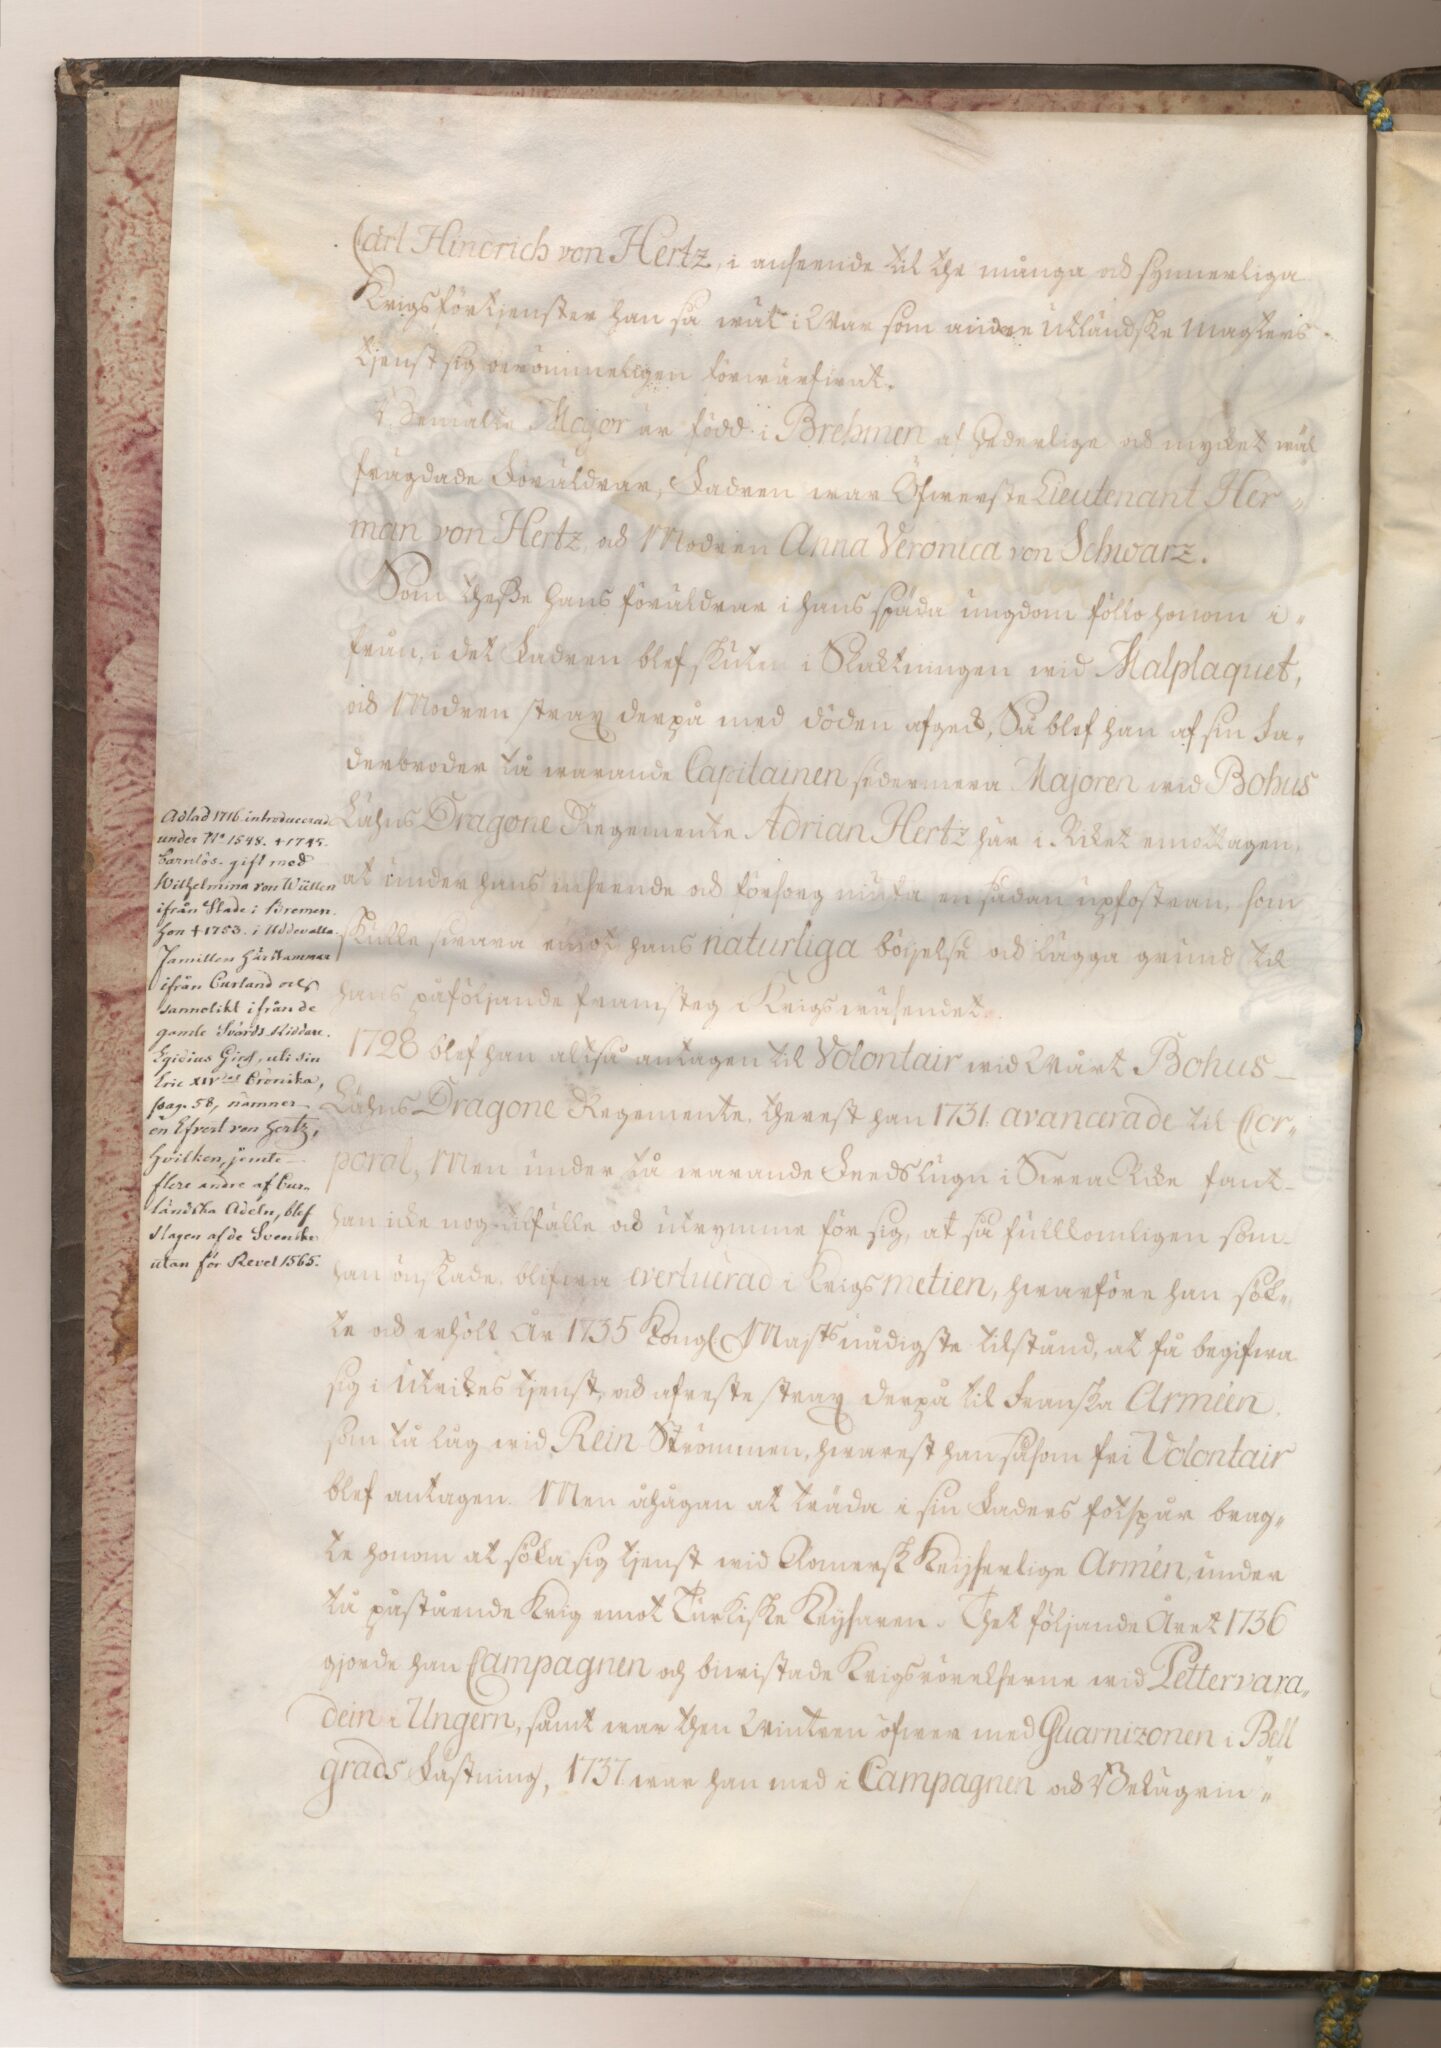 Carl Hindrich von Hertz, i anseende til the många och synnerliga
Krigsförtjenster han så wäl i Wår som andre Utländske Magters
tjenst sig berömmeligen förwärfwat.
Bemälte Major är född i Brehmen af hederlige och mycket wäl
frägdade Föräldrar, Fadren war Öfwerste Lieutenant Her„
man von Hertz, och Modren Anna Veronica von Schwarz.
Som theße hans föräldrar i hans späda ungdom föllo honom i„
från, i det Fadren blef skuten i Slaktningen wid Malplaquet,
och Modren strax derpå med döden afgick, Så blef han af sin Fa„
derbroder tå warande Capitainen sedermera Majoren wid Bohus
Lähns Dragone Regemente Adrian Hertz här i Riket emottagen,
at under hans inseende och försorg niuta en sådan upfostran, som
skulle swara emot hans naturliga böijelse och lägga grund til
hans påföljande framsteg i Krigswäsendet.
1728 blef han altså antagen til Volontair wid Wårt Bohus-
Lähns Dragone Regemente, therest han 1731 avancerade til Cor„
poral, Men under tå warande Fredslugn i Swea Rike fant
han icke nog tilfälle och utrymme för sig, at så fullkomligen som
han önskade, blifwa evertuerad i Krigsmetien, hwarföre han sök„
te och erhöll År 1735 Kongl. Majts nådigste tilstånd, at få begifwa
sig i Utrikes tjenst, och afreste strax derpå til Franska Arméen,
som tå låg wid Rein Strömmen, hwarest han såsom fri Volontair
blef antagen. Men åhågan at träda i sin Faders fotspår brag„
te honom at söka sig tjenst wid Romersk Keijserlige Armén, under
tå påstående Krig emot Turkiske Keijsaren. Thet följande Året 1736
gjorde han Campagnen och biwistade Krigsrörelserne wid Pettervara„
dein i Ungern, samt war then Wintren öfwer med Guarnizonen i Bell„
grads Fästning, 1737 war han med i Campagnen och Belägrin„
Adlad 1716. introducerad
under No 1548. † 1745.
barnlös. gift med
Wilhelmina von Wüllen
ifrån Stade i Bremen.
hon † 1753. i Uddevalla.
Familien härstammar
ifrån Curland och
sannolikt ifrån de
gamle Svärds-Riddare.
Egidius Girs, uti sin
Eric XIV:des Crönika,
pag. 58, nämner
en Efvert von Hertz,
hvilken, jemte
flere andre af Cur„
ländska Adeln, blef
slagen af de Svenske
utan för Revel 1565.